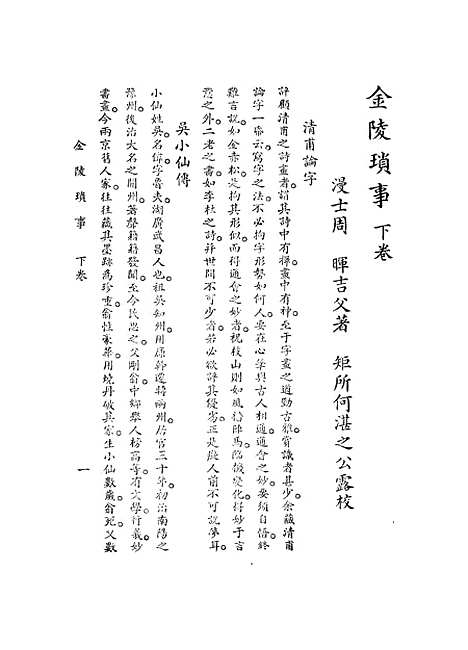 金陵瑣事 下卷
漫士周 暉吉父著 矩所何湛之公露校
清甫論字
薛顧清甫之詩畫者謂其詩中有禪畫中有神至于字畫之遒勁古雅賞識者甚少。余藏清甫
論字一帋云。寫字之法。不必拘字形勢如何。人要在心筆與古人相通。通會之妙。要須自悟。終
難言說。如金赤松。是拘其形似。而得通會之妙者。祝枝山則如風檣陣馬。臨機變化。得妙于言
意之外。二老之書。如李杜之詩。并世間不可少者。若必欲辯其優劣。正是癡人前不可說夢耳。
吳小仙傳
小仙姓吳名偉字魯夫湖廣武昌人也。祖吳知州。用廉幹遷轉兩州。居官三十年。初治南陽之
州。後治大名之開州。著聲籍籍發聞。至今民思之。父剛翁。中鄉舉人榜。高等。有文學行義。妙
書畫。今兩京舊人家。往往藏其墨跡。為珍重。翁性豪。弄用燒丹破其家。生小仙數歲。翁死。又數
金陵瑣事 下卷 一